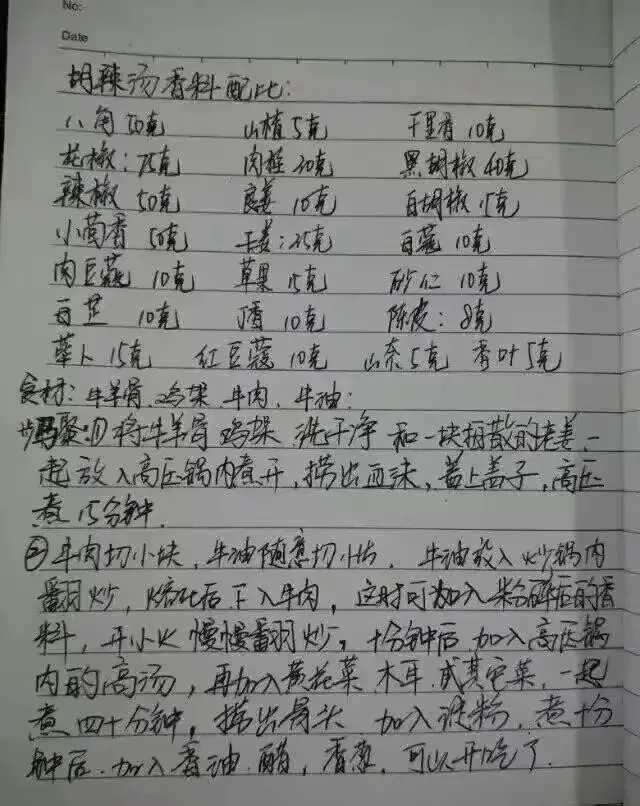 No:
Date
胡辣汤香料配比:
八角 50克 山楂 5克 千里香 10克
花椒: 75克 肉桂 20克 黑胡椒 40克
辣椒 50克 良姜 10克 白胡椒 15克
小茴香 50克 干姜: 25克 白蔻 10克
肉豆蔻 10克 草果 15克 砂仁 10克
白芷 10克 丁香 10克 陈皮: 8克
荜卜 15克 红豆蔻 10克 山奈 5克 香叶 5克
食材: 牛羊骨、鸡架、牛肉、牛油:
步骤: ① 将牛羊骨 鸡架 洗干净 和一块拍散的老姜 一
起放入高压锅内煮开, 捞出血沫, 盖上盖子, 高压
煮 15分钟.
② 牛肉切小块, 牛油随意切小块, 牛油放入炒锅内
翻炒, 熔化后下入牛肉, 这时可加入粉碎后的香
料, 开小火慢慢翻炒, 十分钟后 加入高压锅
内的高汤, 再加入黄花菜 木耳 或其它菜, 一起
煮四十分钟, 捞出骨头 加入淀粉, 煮十分
钟后. 加入香油. 醋, 香葱, 可以开吃了.